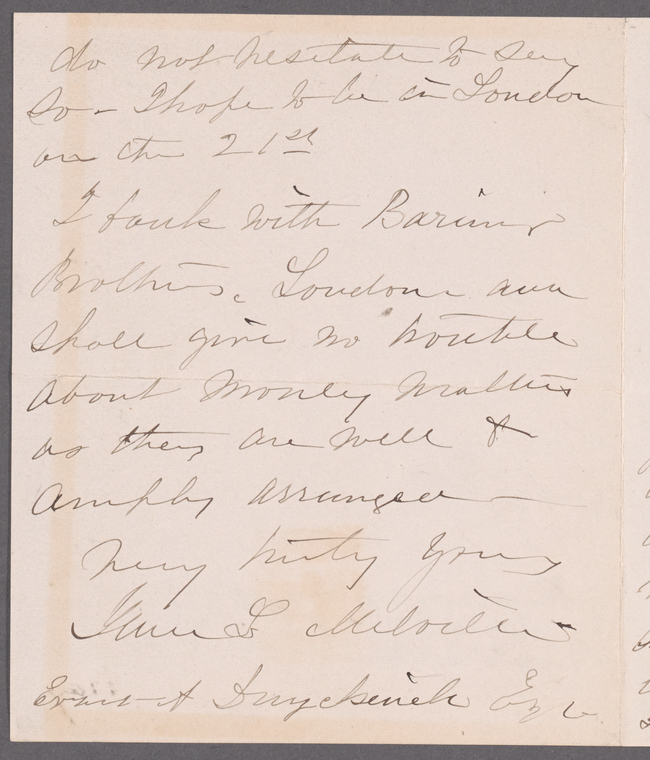 do not hesitate to say
so - I hope to be in London
on the 21st
I bank with Baring
Brothers, London and
shall give no trouble
about money matters
as they are well &
amply arranged
Very truly yours
L Melville
Evert A Duyckinck Esq